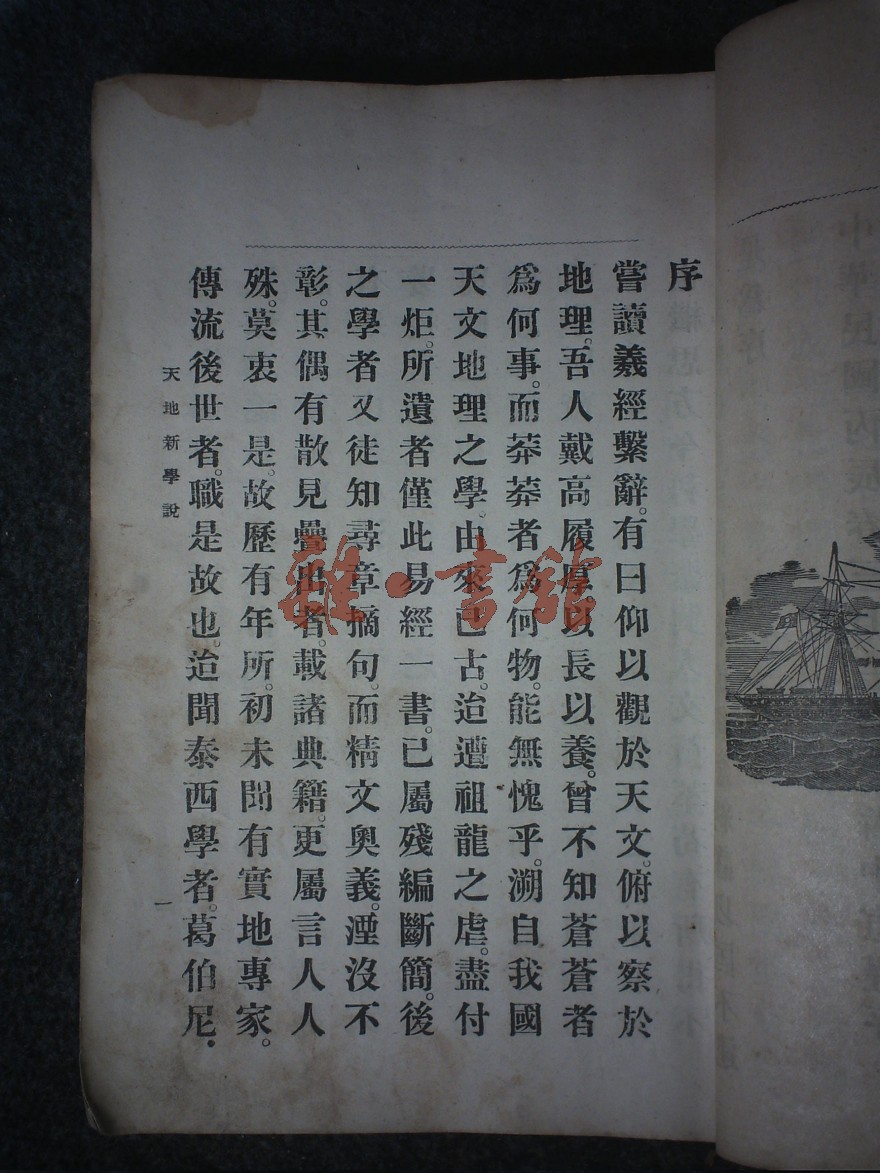 序
嘗讀羲經繫辭。有曰仰以觀於天文。俯以察於
地理。吾人戴高履厚。以長以養。曾不知蒼蒼者
爲何事。而莽莽者爲何物。能無愧乎。溯自我國
天文地理之學。由來已古。迨遭祖龍之虐。盡付
一炬。所遺者僅此易經一書。已屬殘編斷簡。後
之學者又徒知尋章摘句。而精文奧義。湮沒不
彰。其偶有散見疊出者。載諸典籍。更屬言人人
殊。莫衷一是。故歷有年所。初未聞有實地專家。
傳流後世者。職是故也。迨聞泰西學者。葛伯尼·
天地新學說
一
雜·書館